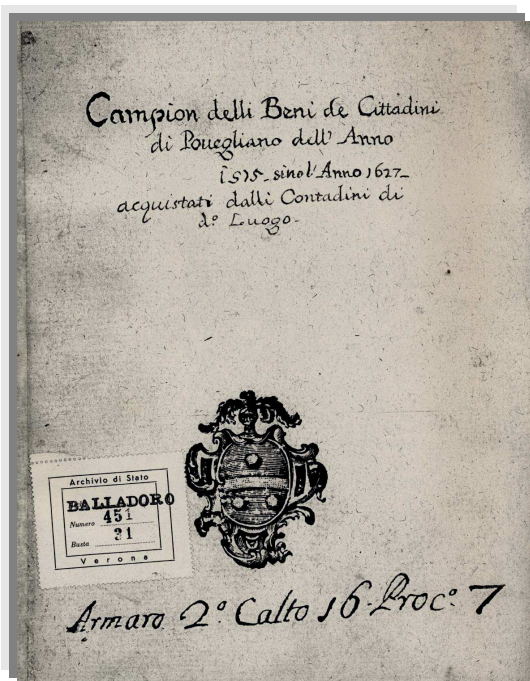 Campion delli Beni de Cittadini
di Pouegliano dell' Anno
1515 sino l'Anno 1627
acquistati dalli Contadini di
d.º Luogo.
Archivio di Stato
BALLADORO
Numero 451
Busta 31
Verona
Armaro 2º Calto 16. Procº. 7